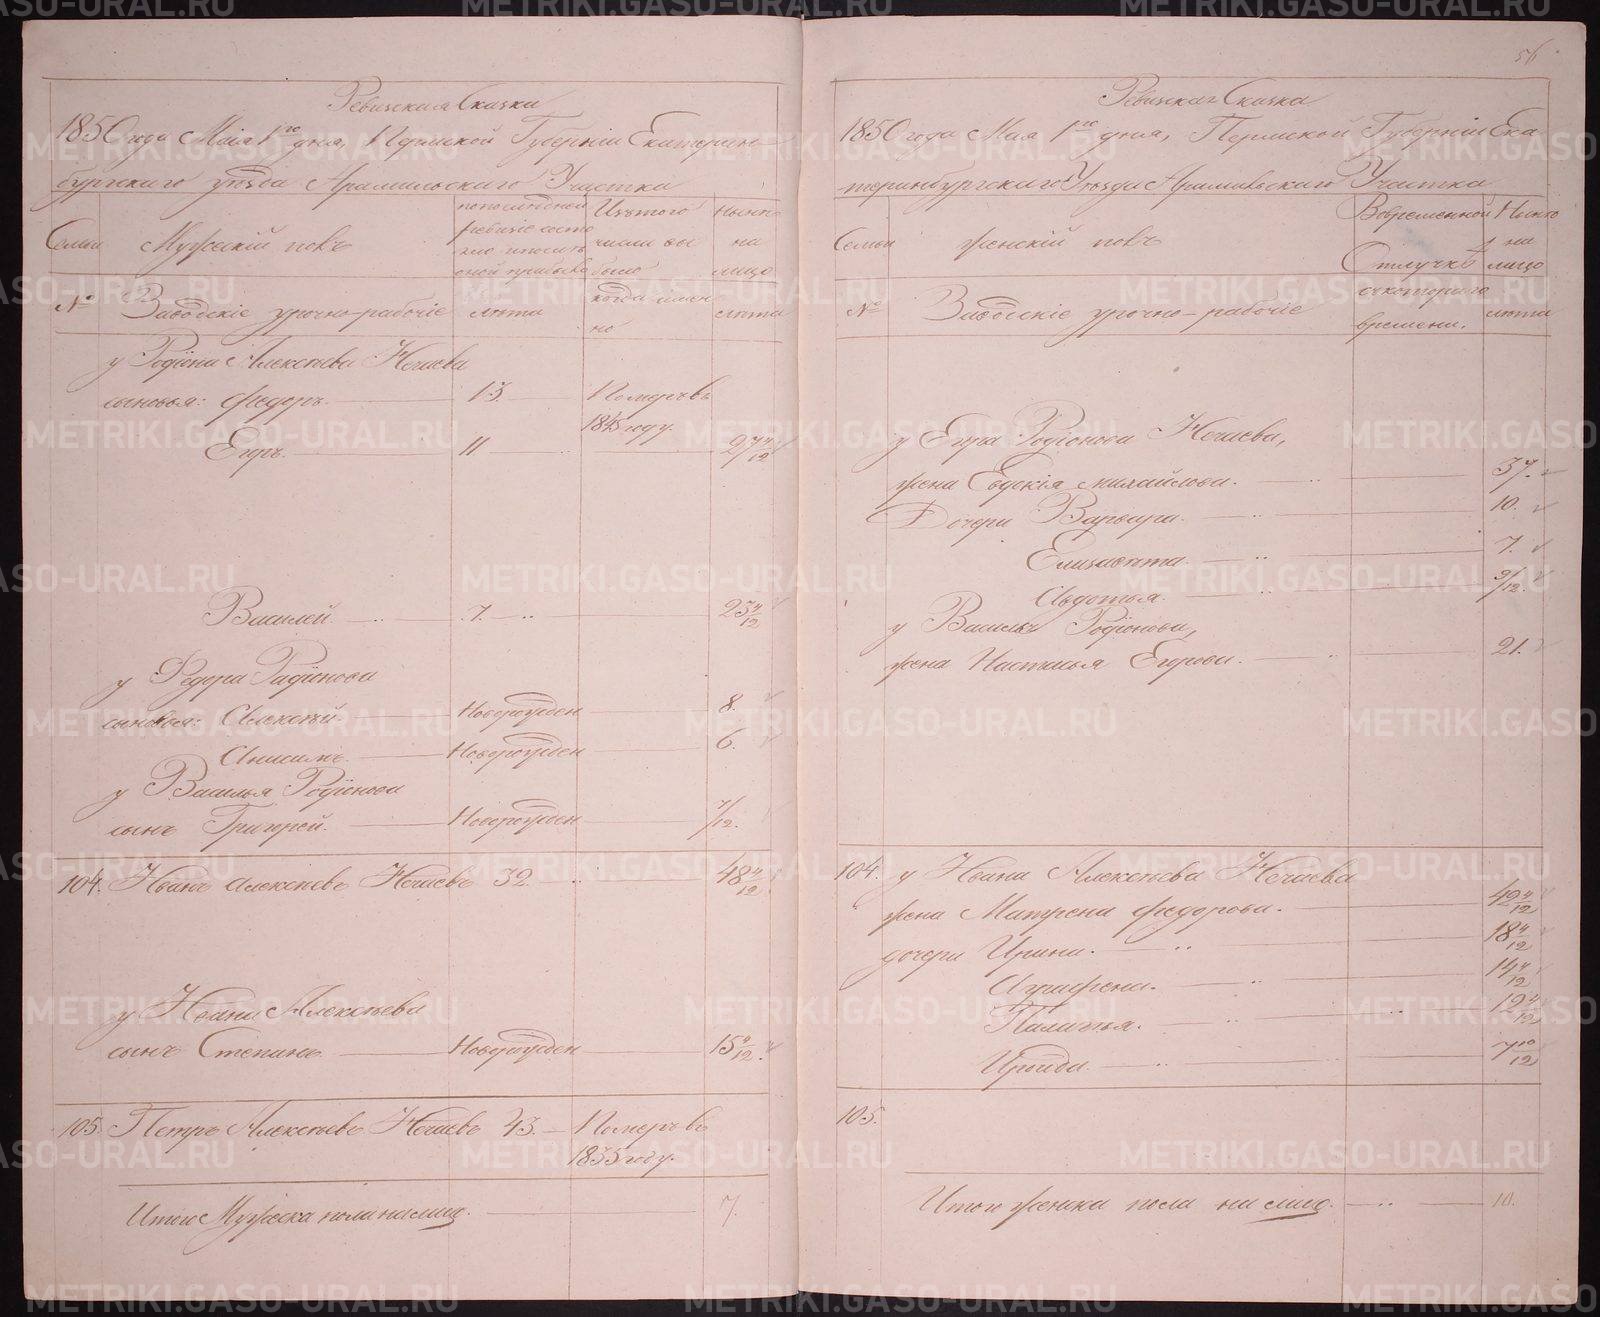 Ревизская Сказка
1850 года Маія 1го дня, Пермской Губерніи Екатерин-
бургскаго уѣзда Арамильскаго Участка
Семьи
Мужескій полъ
по последней ревизіе состояло и после оной прибыло
Изъ того числа выбыло
Нынѣ на лицо
№
Заводскіе урочно-рабочіе
лѣта
когда имен
но
лѣта
у Родіона Алексѣева Нечаева
сыновья: Федоръ. 13. Померъ въ
1845 году.
Егоръ. 11 27 4/12
Василей 7. 23 4/12
у Федора Радіонова
сыновья: Алексѣй. Новорожден 8.
Анисимъ. Новорожден 6.
у Василья Родіонова
сынъ Григорей. Новорожден 7/12.
104. Иванъ Алексѣевъ Нечаевъ 32 48 4/12
у Ивана Алексѣева
сынъ Степанъ. Новорожден 15 9/12.
105. Петръ Алексѣевъ Нечаевъ 43. Померъ въ
1835 году.
Итого Мужеска пола на лицо. 7.
56
Ревизская Сказка
1850 года Мая 1го дня, Пермской Губерніи Ека
теринбургскаго Уѣзда Арамильскаго Участка
Семьи
женскій полъ
Во временной
Отлучкѣ
Нынѣ
на
лицо
№
Заводскіе урочно-рабочіе
съ котораго
времени.
лѣта
у Егора Родіонова Нечаева,
жена Евдокія Михайлова. 37.
Дочери Варвара. 10.
Елизавѣта. 7.
Авдотья. 9/12.
у Василья Родіонова,
жена Настасья Егорова. 21.
104. у Ивана Алексѣева Нечаева
жена Матрена Федорова. 49 4/12
дочери Ирина. 18 4/12
Аграфена. 14 4/12
Палагья. 12 4/12
Ираида. 7 10/12
105.
Итого женска пола на лицо. 10.
METRIKI.GASO-URAL.RU